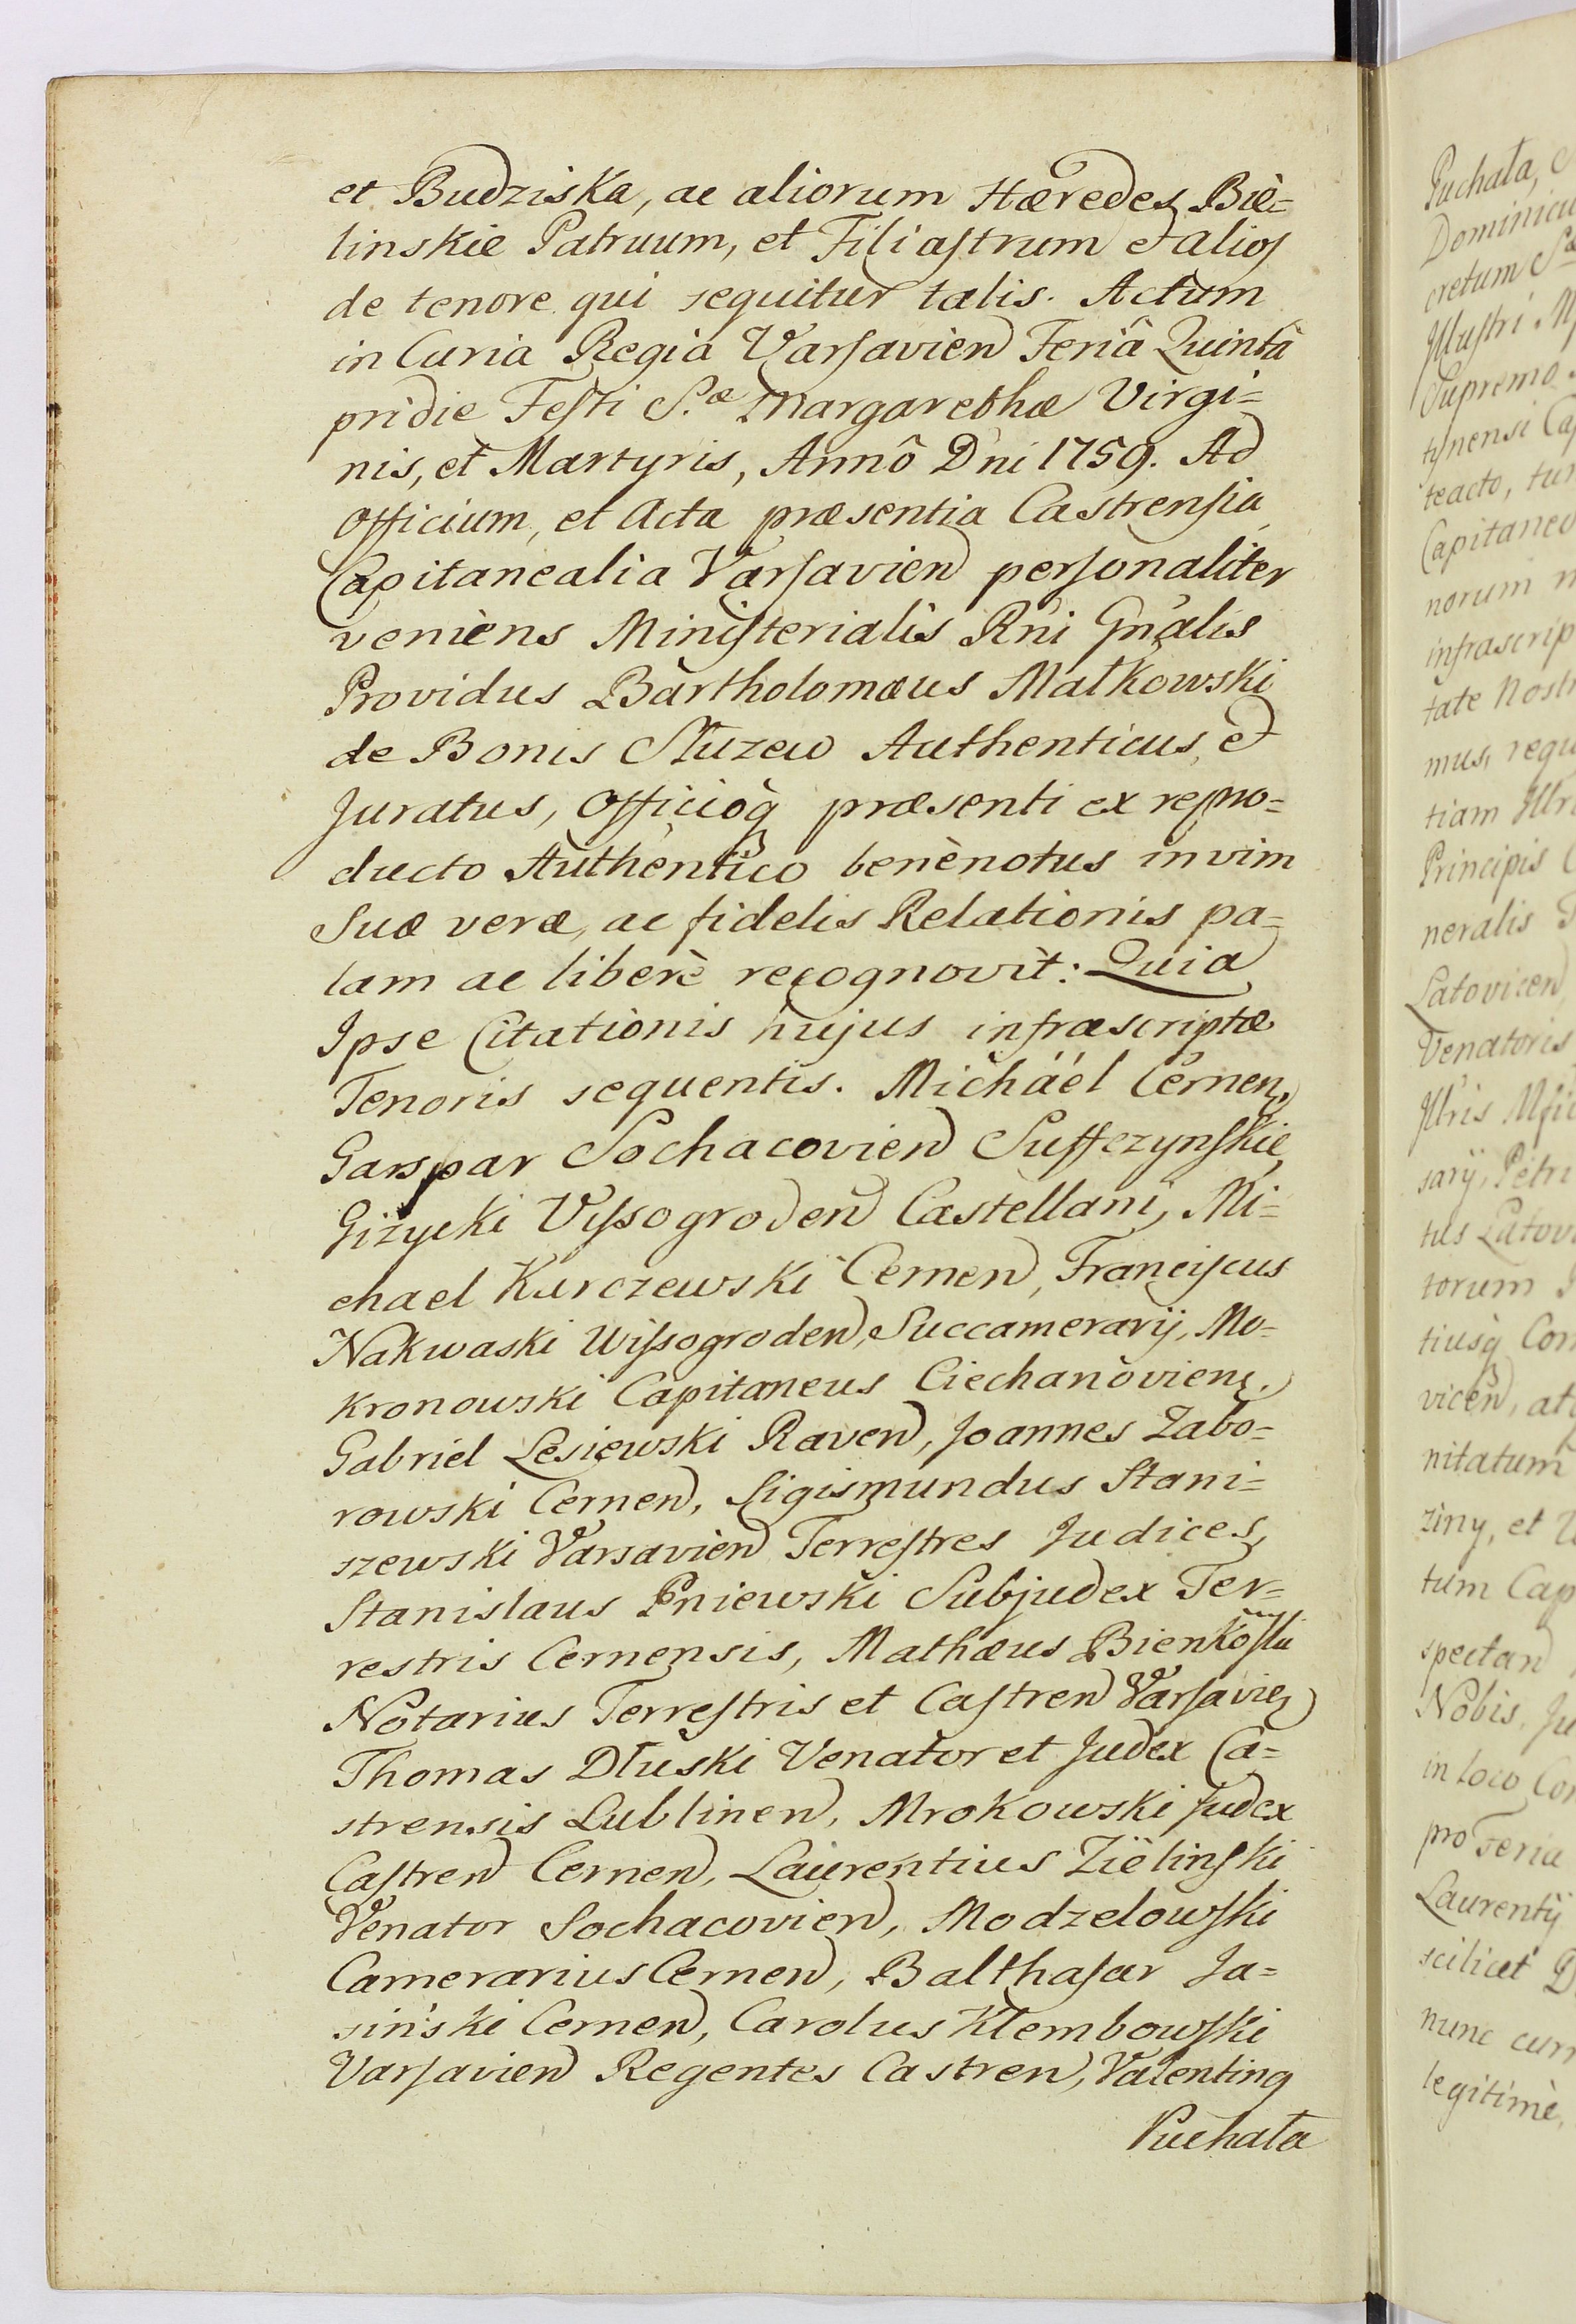 et Budziska, ac aliorum Hæredes Bie=
linskie Patruum, et Filiastrum et alios
de tenore qui sequitur talis. Actum
in Curia Regia Varsavien Feriâ Quintâ
pridie Festi S.æ Margarethæ Virgi=
nis, et Martyris, Annô Dni 1759. Ad
Officium, et Acta præsentia Castrensia
Capitanealia Varsavien personaliter
veniens Ministerialis Rni Gnalis
Providus Bartholomæus Małkowski
de Bonis Służew Authenticus, et
Juratus, Officioq præsenti ex repro=
ducto Authentico benènotus in vim
Suæ veræ, ac fidelis Relationis pa=
lam ac liberè recognovit: Quia
Ipse Citationis hujus infrascriptæ
Tenoris sequentis. Michaël Cernen,
Gaspar Sochacovien Suffczynskie,
Giżycki Vissogroden Castellani, Mi=
chael Kurczewski Cernen, Franciscus
Nakwaski Wissogroden, Succamerarij, Mo=
kronowski Capitaneus Ciechanovien,
Gabriel Lesiewski Raven, Joannes Zabo=
rowski Cernen, Sigismundus Stani=
szewski Varsavien Terrestres Judices,
Stanislaus Pniewski Subjudex Ter=
restris Cernensis, Mathæus Bienkoski
Notarius Terrestris et Castren Varsavien
Thomas Dłuski Venator et Judex Ca=
strensis Lublinen, Mrokowski Judex
Castren Cernen, Laurentius Zielinski
Venator Sochacovien, Modzelowski
Camerarius Cernen, Balthasar Ja=
siński Cernen, Carolus Klembowski
Varsavien Regentes Castren, Valentinq
Puchała
Puchała,
Dominicu
cretum
Illustri
Supremo
tynensi
teacto,
Capitaneo
norum
infrascrip
tate Nostr
mus, requ
tiam
Principis
neralis
Latovicen
Venatoris
sarij, Petri
tus Latov
torum
tiusq Con
vicen,
nitatum
ziny, et
tum Cap
spectan
Nobis,
in loco
pro Seria
Laurentij
scilicet
nunc
legitimè,